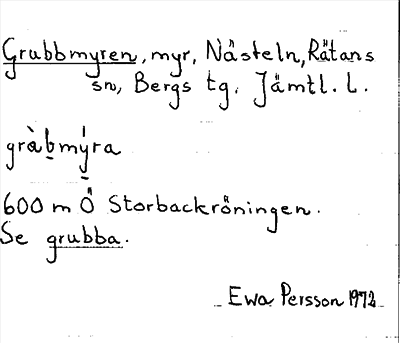 Grubbmyren, myr, Nästeln, Rätans
sn, Bergs tg. Jämtl. l.
gràb̲mý̲ra
600 m Ö Storbackröningen.
Se grubba.
Ewa Persson 1972